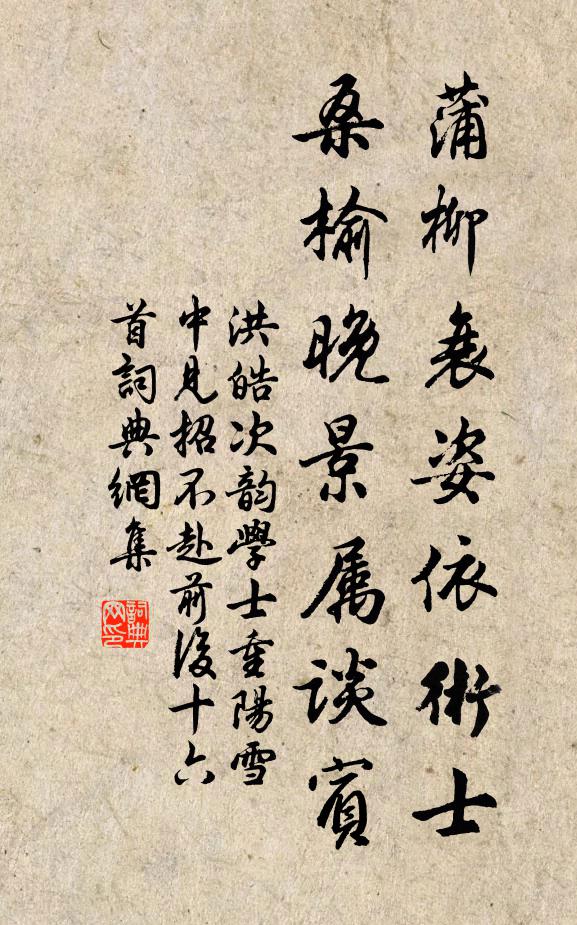 蒲柳衰姿依術士
桑榆晚景属谈賓
洪皓次韵學士重陽雪
中見招不赴前後十六
首詞典網集
詞典
网印